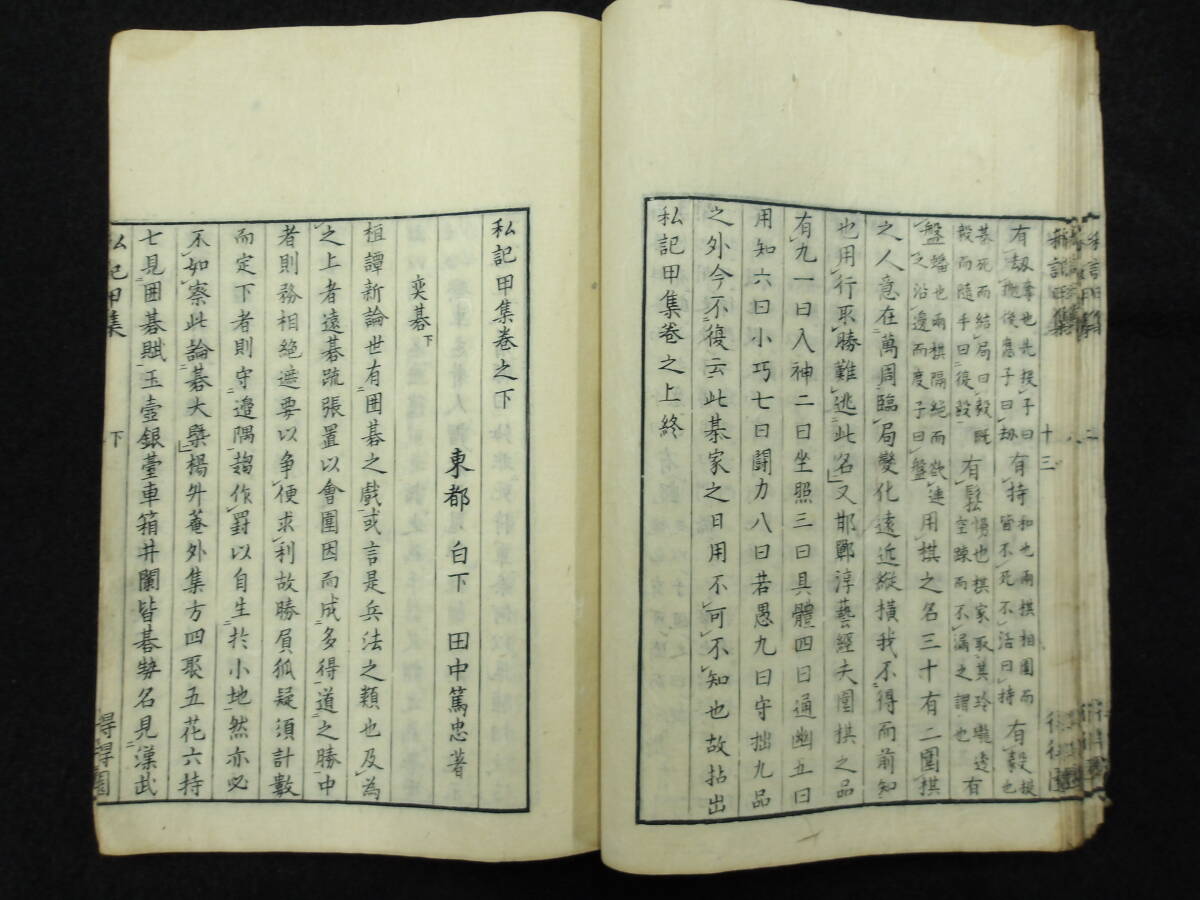 有劫奪也先投子曰抛後應子曰劫有持和也兩棋相圍而皆不死不活曰持有毅提也
棊死而結局曰毅既毅而隨手曰復毅有鬆慢也棋家取其玲瓏透空疎而不漏之謂也有
盤蟠也兩棋隔絕而欲連之沿邊而度子曰盤用棋之名三十有二圍棋
之人意在萬周臨局變化遠近縱橫我不得而前知
也用行取勝難逃此名又邯鄲淳藝經夫圍棋之品
有九一曰入神二曰坐照三曰具體四曰通幽五曰
用知六曰小巧七曰鬪力八曰若愚九曰守拙九品
之外今不復云此棊家之日用不可不知也故拈出
私記甲集卷之上終
十三
私記甲集卷之下
東都 白下 田中篤忠著
奕碁下
桓譚新論世有囲碁之戲或言是兵法之類也及為
之上者遠碁疏張置以會圍因而成多得道之勝中
者則務相絕遮要以争便求利故勝負狐疑須計數
而定下者則守邊隅趨作罫以自生於小地然亦必
不如察此論碁大槩楊外菴外集方四聚五花六持
七見囲碁賦玉壺銀臺車箱井闌皆碁勢名見漢武
私記甲集 下 得得園